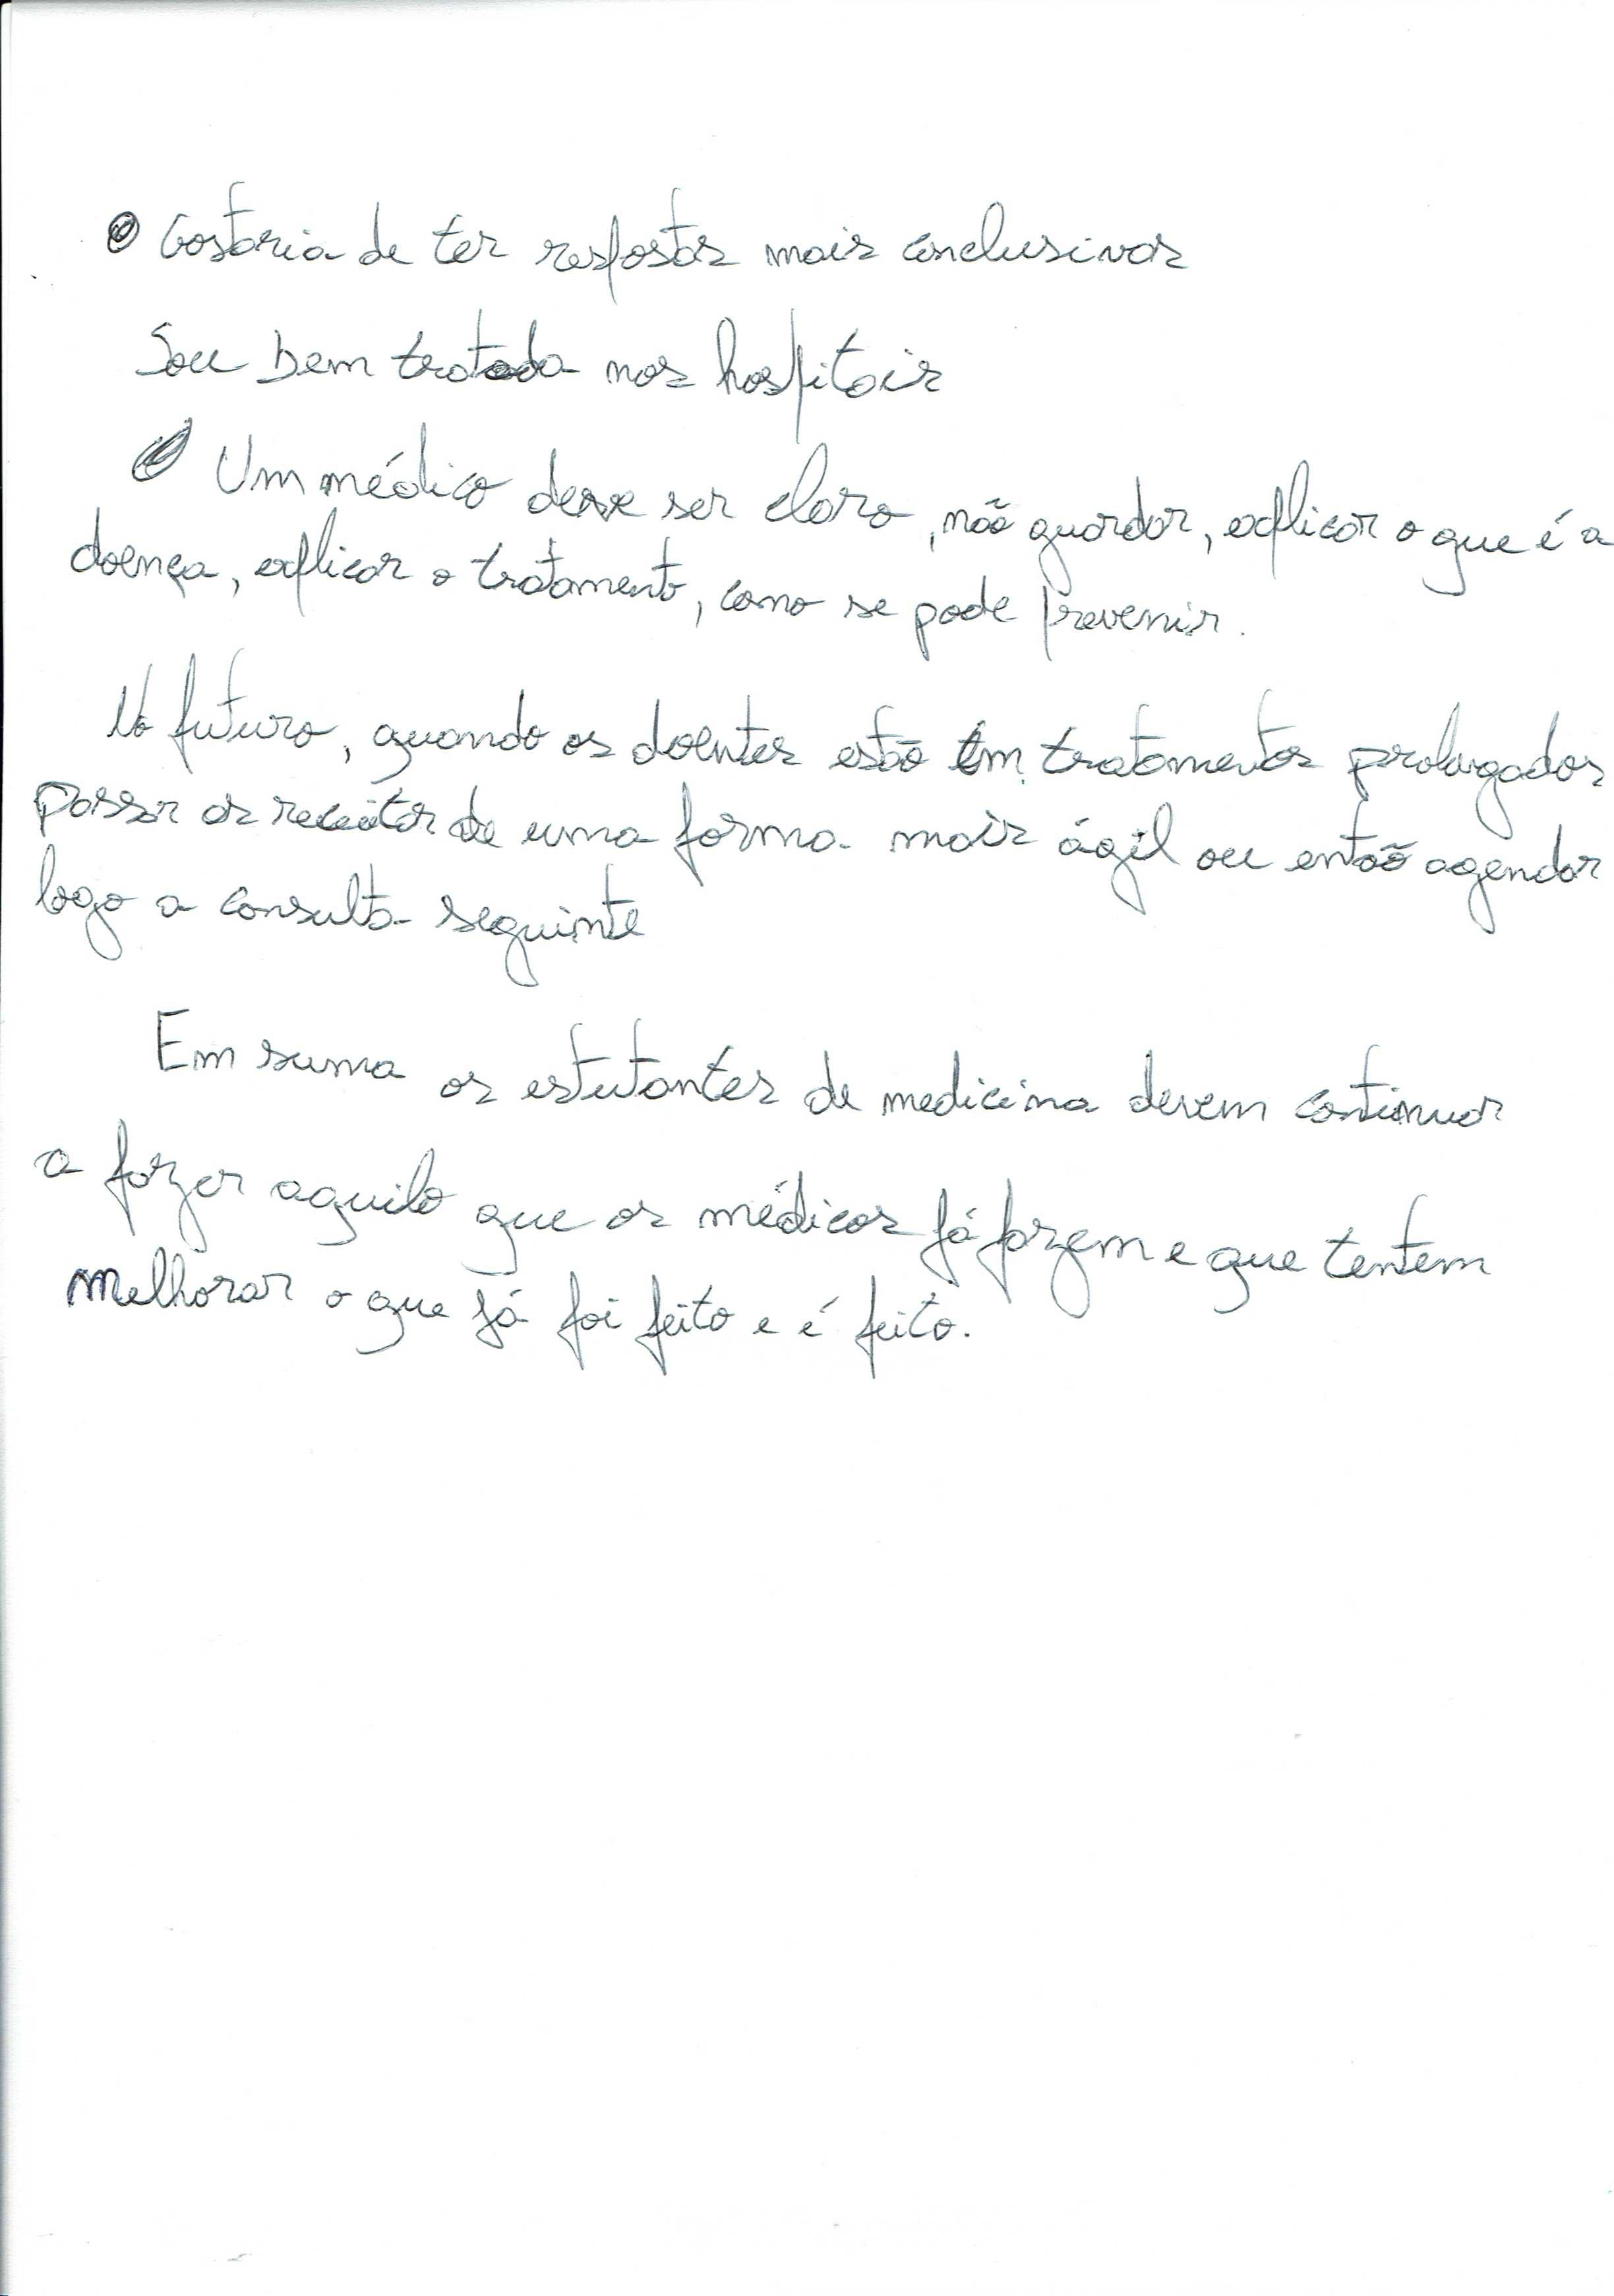 Gostaria de ter respostas mais conclusivas
Sou bem tratada nos hospitais
Um médico deve ser claro, não guardar, explicar o que é a
doença, explicar o tratamento, como se pode prevenir.
No futuro, quando os doentes estão em tratamentos prolongados
passar as receitas de uma forma mais ágil ou então agendar
logo a consulta seguinte
Em suma os estutantes de medicina devem continuar
a fazer aquilo que os médicos já fazem e que tentem
melhorar o que já foi feito e é feito.